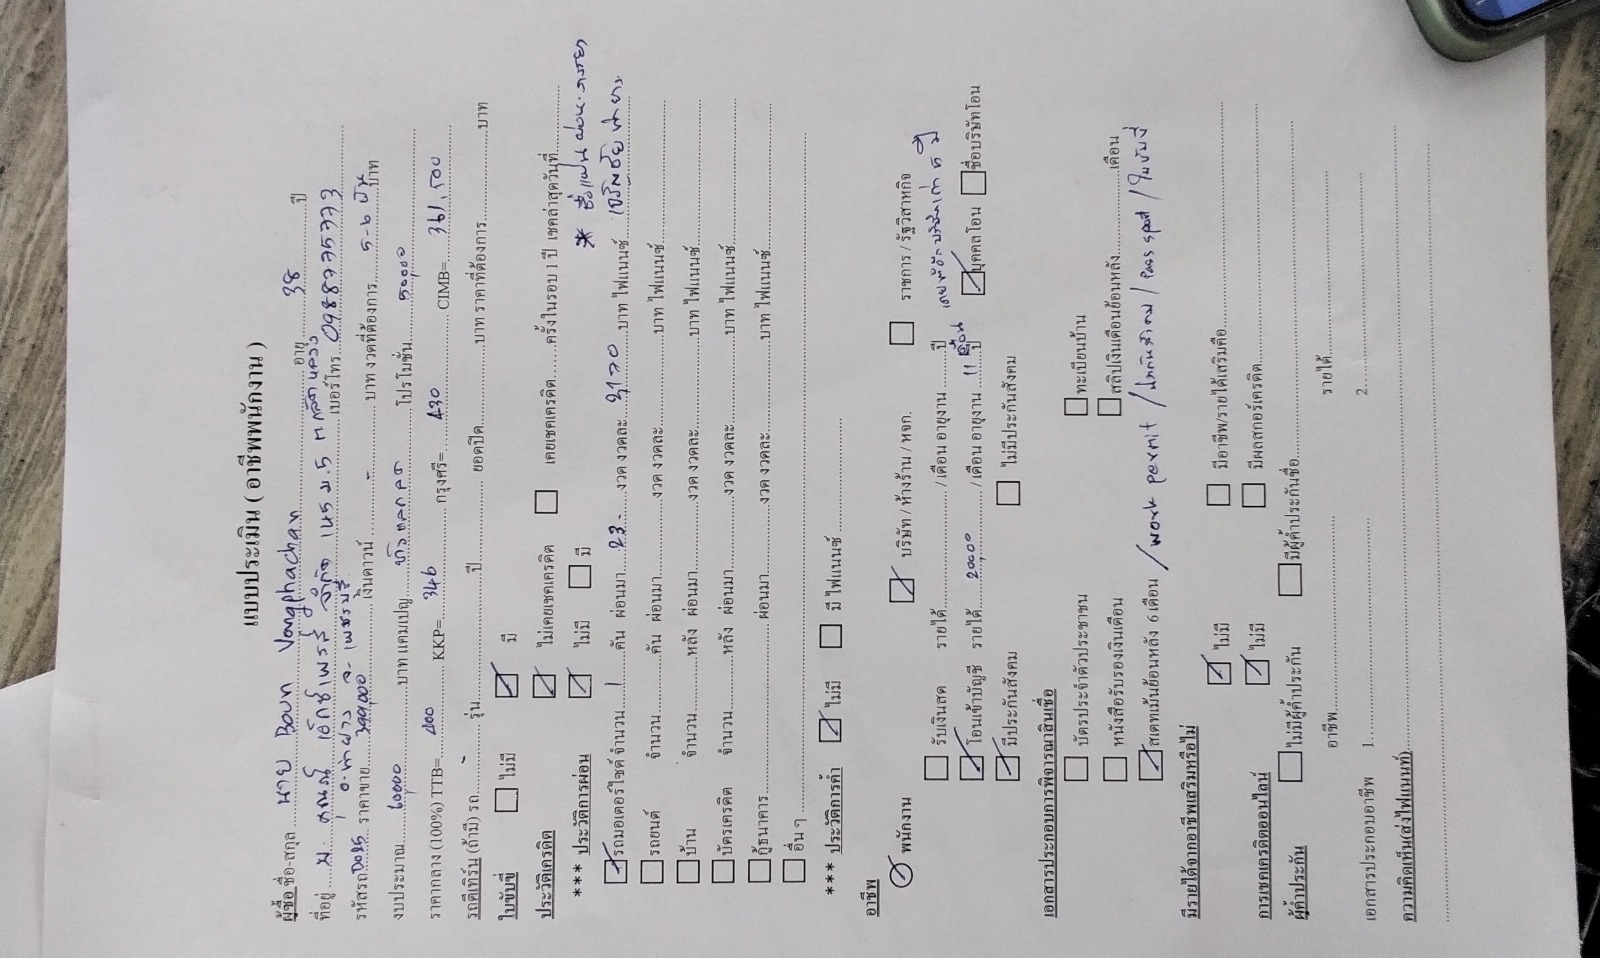 แบบประเมิน ( อาชีพพนักงาน )
ผู้ซื้อ ชื่อ-สกุล นาย Boun Vongphachan อายุ 38 ปี
ที่อยู่ จำกัด ม.5 เบอร์โทร 0988775773
อ.ท่ายาง จ.เพชรบุรี
รหัสรถ ราคาขาย 399,000 เงินดาวน์ - บาท งวดที่ต้องการ 5-6 ปี บาท
งบประมาณ 60,000 บาท แคมเปญ โปรโมชั่น 50,000
ราคากลาง (100%) TTB= 400 KKP= 346 กรุงศรี= 430 CIMB= 361,500
รถตีเทิร์น (ถ้ามี) รถ - รุ่น ปี ยอดปิด บาท ราคาที่ต้องการ บาท
ใบขับขี่ ไม่มี มี
ประวัติเครดิต ไม่เคยเชคเครดิต เคยเชคเครดิต ครั้งในรอบ 1 ปี เชคล่าสุดวันที่
*** ประวัติการผ่อน ไม่มี มี * ชื่อแฟน
รถมอเตอร์ไซค์ จำนวน 1 คัน ผ่อนมา 23 - งวด งวดละ บาท ไฟแนนซ์
รถยนต์ จำนวน คัน ผ่อนมา งวด งวดละ บาท ไฟแนนซ์
บ้าน จำนวน หลัง ผ่อนมา งวด งวดละ บาท ไฟแนนซ์
บัตรเครดิต จำนวน หลัง ผ่อนมา งวด งวดละ บาท ไฟแนนซ์
กู้ธนาคาร ผ่อนมา งวด งวดละ บาท ไฟแนนซ์
อื่น ๆ
*** ประวัติการค้า ไม่มี มี ไฟแนนซ์
อาชีพ
พนักงาน บริษัท / ห้างร้าน / หจก. ราชการ / รัฐวิสาหกิจ
รับเงินสด รายได้ / เดือน อายุงาน ปี
โอนเข้าบัญชี รายได้ 20,000 / เดือน อายุงาน 11 เดือน ปี บุคคลโอน ชื่อบริษัทโอน
มีประกันสังคม ไม่มีประกันสังคม
เอกสารประกอบการพิจารณาสินเชื่อ
บัตรประจำตัวประชาชน ทะเบียนบ้าน
หนังสือรับรองเงินเดือน สลิปเงินเดือนย้อนหลัง เดือน
สเตทเม้นย้อนหลัง 6 เดือน / work permit / / pass spot / ใบขับขี่
มีรายได้จากอาชีพเสริมหรือไม่ ไม่มี มีอาชีพ/รายได้เสริมคือ
การเชคเครดิตออนไลน์ ไม่มี มีผลสกอร์เครดิต
ผู้ค้ำประกัน ไม่มีผู้ค้ำประกัน มีผู้ค้ำประกันชื่อ
อาชีพ รายได้
เอกสารประกอบอาชีพ 1 2
ความคิดเห็น(ส่งไฟแนนท์)